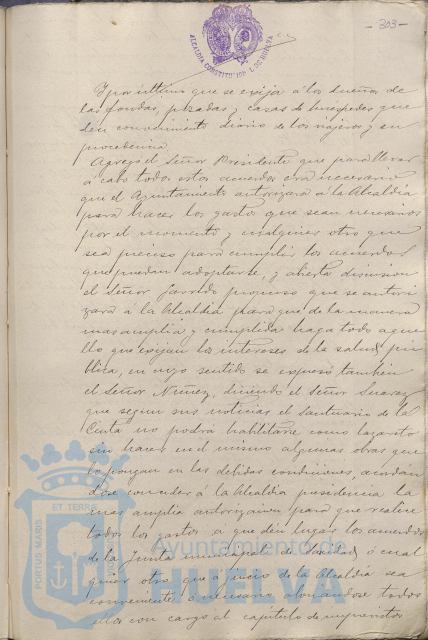 -303-
ALCALDIA CONSTITUCIONAL DE HUELVA
Y por ultimo que se exija á los dueños de
las fondas, posadas y casas de huespedes que
den conocimiento diario de los viajeros y su
procedencia
Agregó el Señor Presidente que para llevar
á cabo todos estos acuerdos era necesario
que el Ayuntamiento autorizara á la Alcaldia
para hacer los gastos que sean necesarios
por el momento y cualquier otro que
sea preciso para cumplir los acuerdos
que puedan adoptarse, y abierta discusion
el Señor Garrido propuso que se autori
zara á la Alcaldia para que de la manera
mas amplia y cumplida haga todo aque
llo que exijan los intereses de la salud pú
blica, en cuyo sentido se expresó tambien
el Señor Nuñez, diciendo el Señor Suarez
que segun sus noticias el Santuario de la
Cinta no podrá habilitarse como lazareto
sin hacer en el mismo algunas obras que
lo pongan en las debidas condiciones, acordan
dose conceder á la Alcaldia presidencia la
mas amplia autorizacion para que realice
todos los gastos á que dén lugar los acuerdos
de la Junta municipal de Sanidad, ó cual
quier otro que á juicio de la Alcaldia sea
conveniente ó necesario abonandose todos
ellos con cargo al capitulo de imprevistos
PORTUS MARIS ET TERRE
Ayuntamiento de
HUELVA